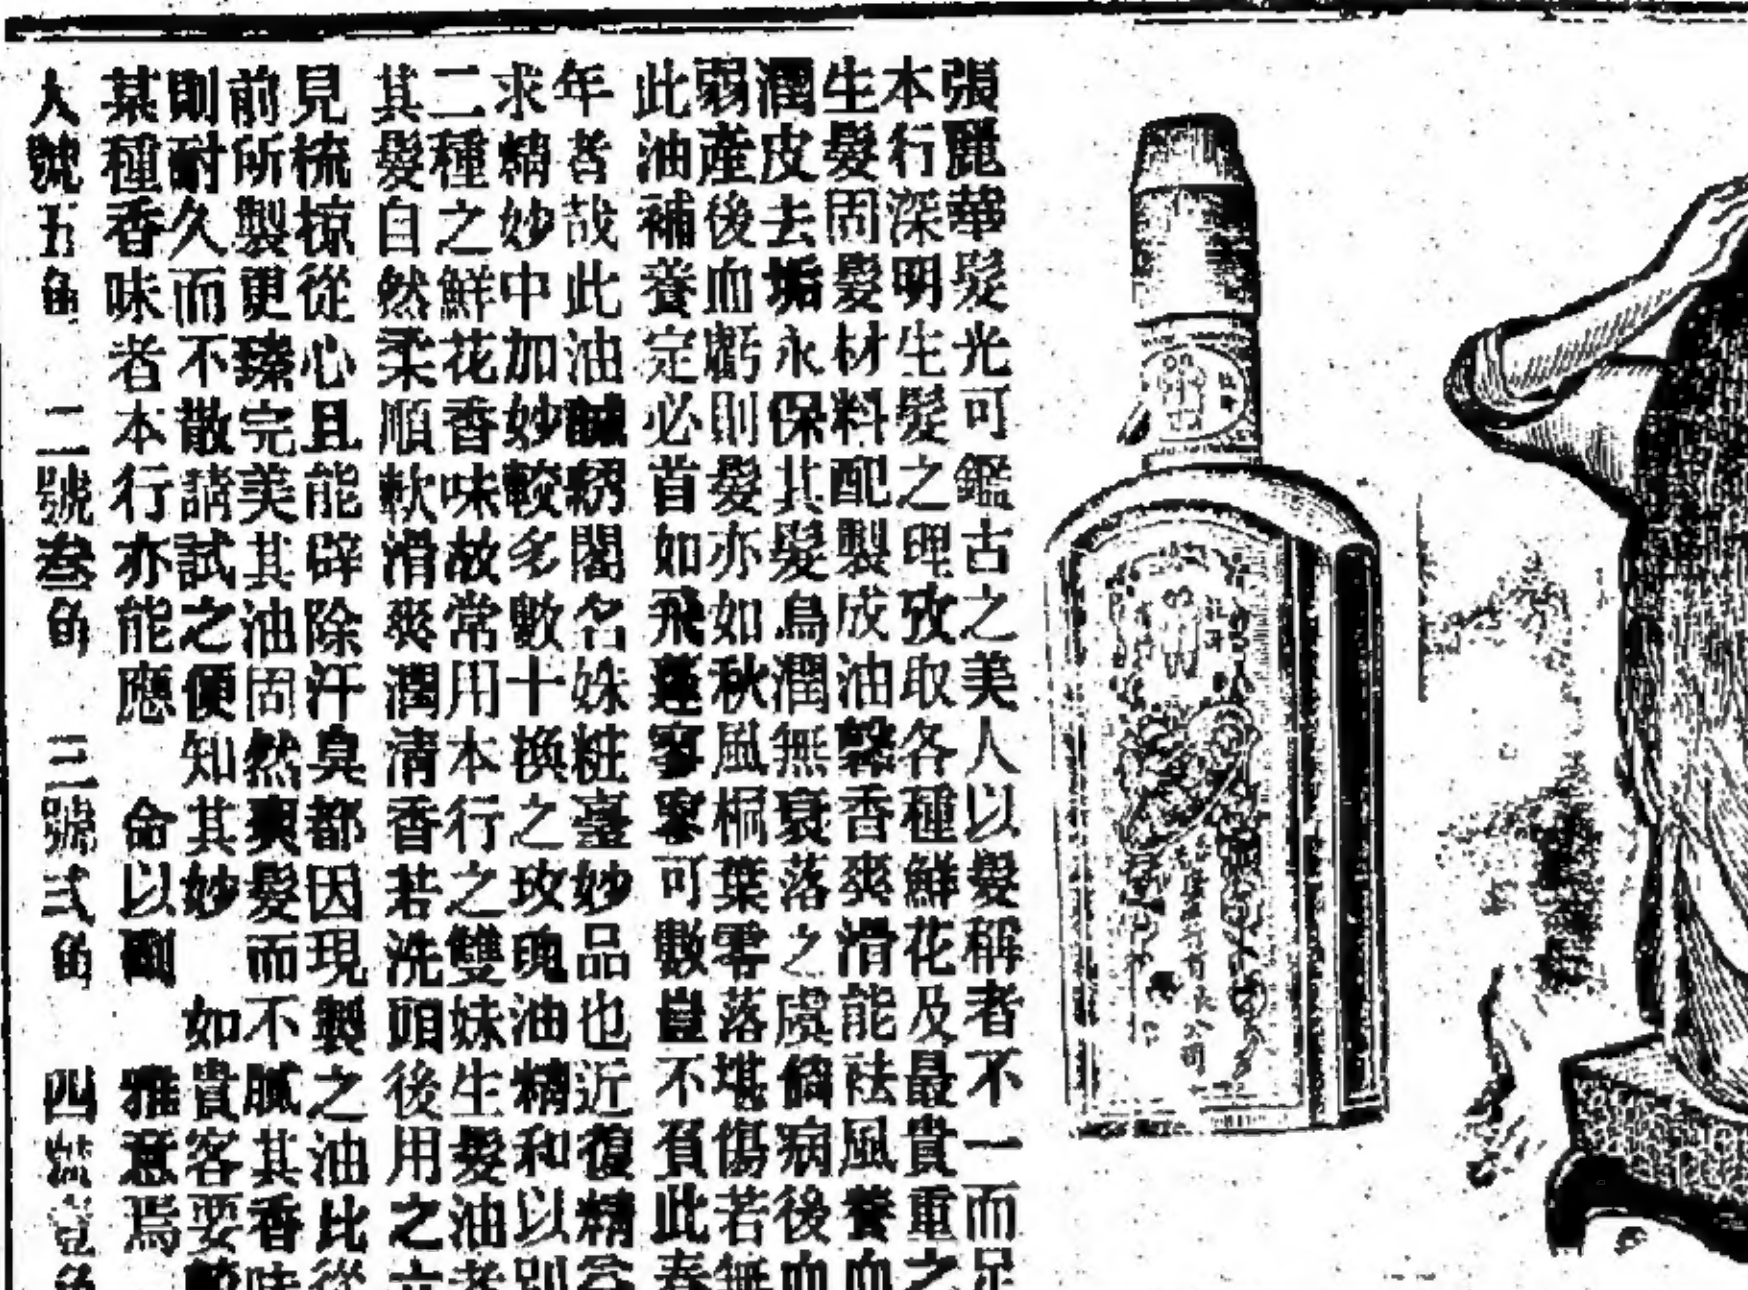 張麗華髮光可鑑古之美人以髮稱者不一而足
本行深明生髮之理攷取各種鮮花及最貴重之
生髮固髮材料配製成油馨香爽滑能祛風養血
潤皮去垢永保其髮烏潤無衰落之虞倘病後血
弱產後血虧則髮亦如秋風桐葉零落堪傷若無
此油補養定必首如飛蓬寥寥可數豈不負此春
年者哉此油誠綉閣名姝粧臺妙品也近復精益
求精妙中加妙較多數十換之玫瑰油精和以別
二種之鮮花香味故常用本行之雙妹生髮油者
其髮自然柔順軟滑爽潤清香若洗頭後用之立
見梳掠從心且能辟除汗臭都因現製之油比從
前所製更臻完美其油固然爽髮而不膩其香味
則耐久而不散請試之便知其妙 如貴客要
某種香味者本行亦能應 命以副 雅意焉
大號五角 二號叁角 三號弍角 四號壹角